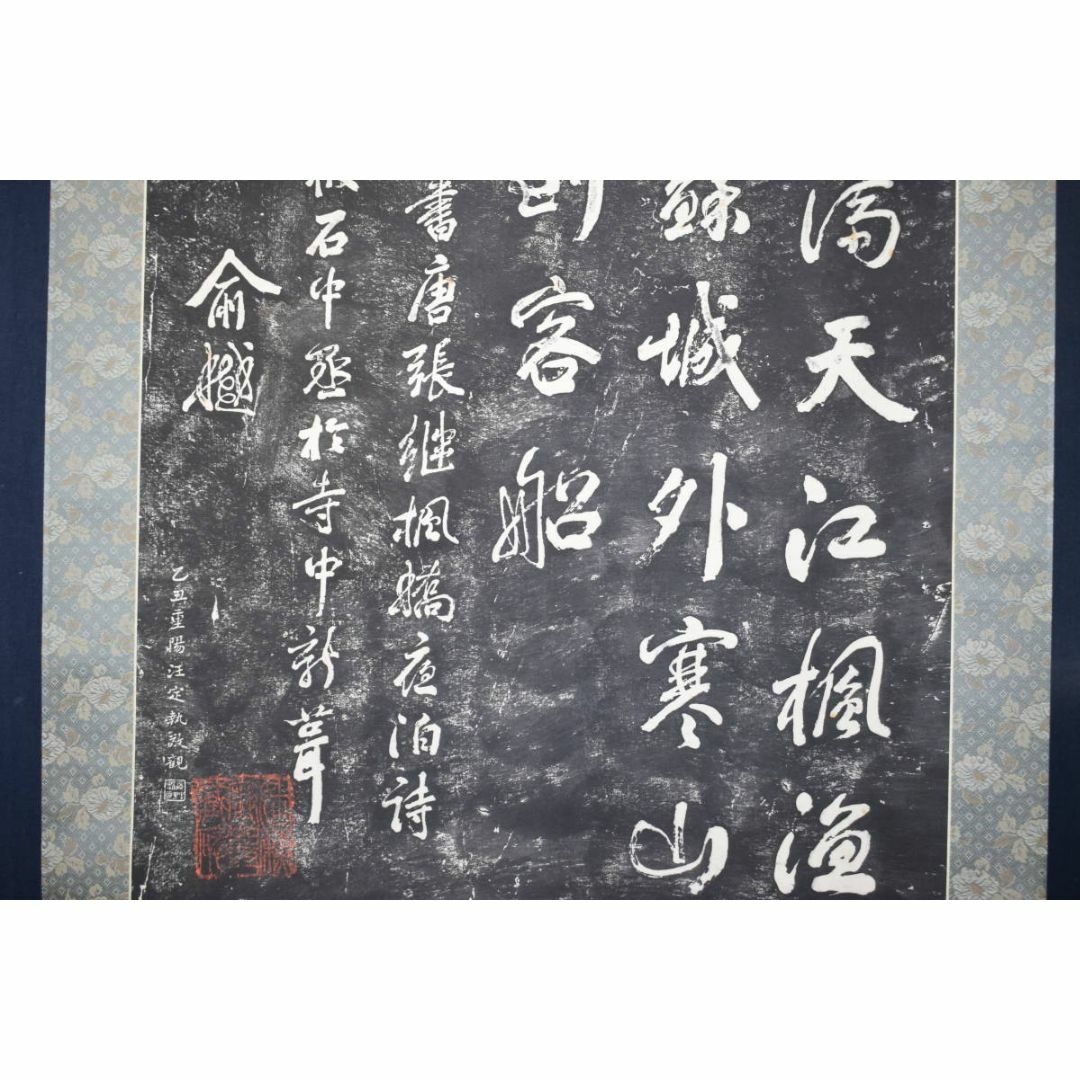 滿天江楓漁
蘇城外寒山
到客船
書唐張継楓橋夜泊詩
石中丞於寺中新葺
俞樾
乙丑重陽汪定執敬觀